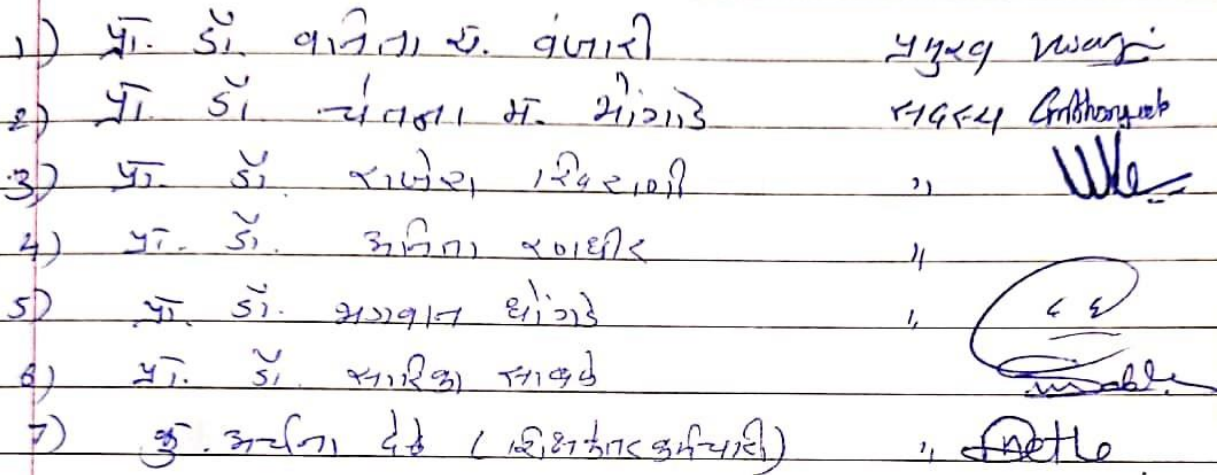 1) प्रा. डॉ. वनिता च. वंजारी प्रमुख
2) प्रा. डॉ. चेतना म. भोंगाडे सदस्य
3) प्रा. डॉ. राजेश ,,
4) प्रा. डॉ. अनिता रणधीर ,,
5) प्रा. डॉ. भगवान धोंगडे ,,
6) प्रा. डॉ. सारिका साबळे
7) कु. अर्चना ढेके (शिक्षकेतर कर्मचारी) ,,